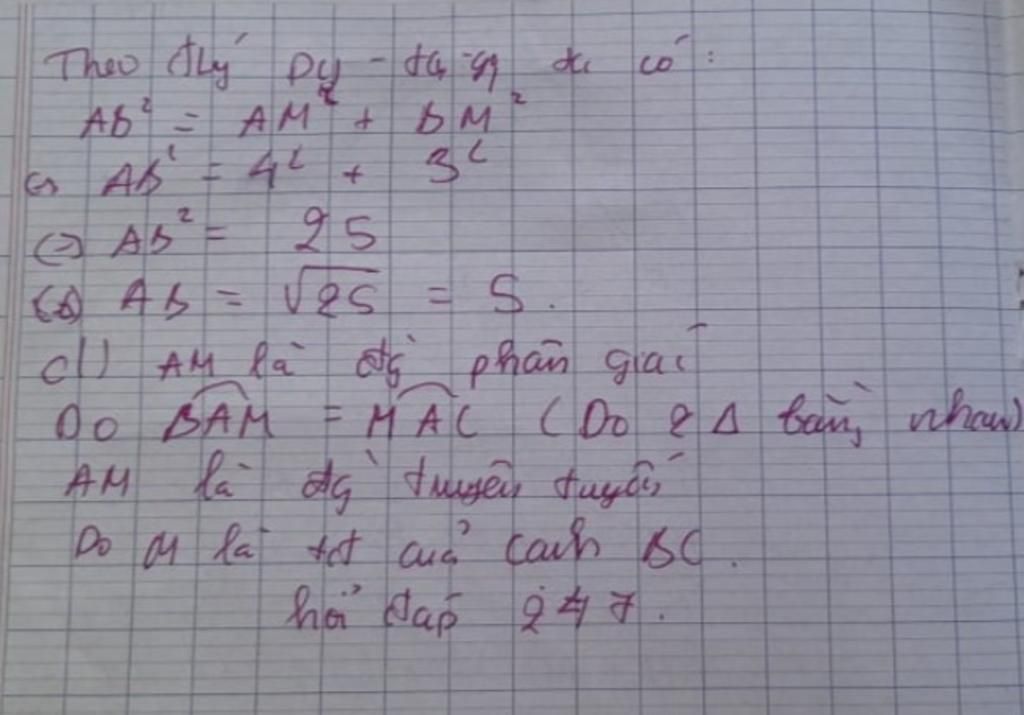 Theo đlý Py-ta-go ta có:
AB² = AM² + BM²
<=> AB² = 4² + 3²
<=> AB² = 25
<=> AB = √25 = 5.
d|) AM là đg` phân giác
Do BAM = MAC (Do 2 Δ bằng nhau)
AM là đg` truyên tuyến
Do M là tđ của cạnh BC.
hỏi đáp 247.